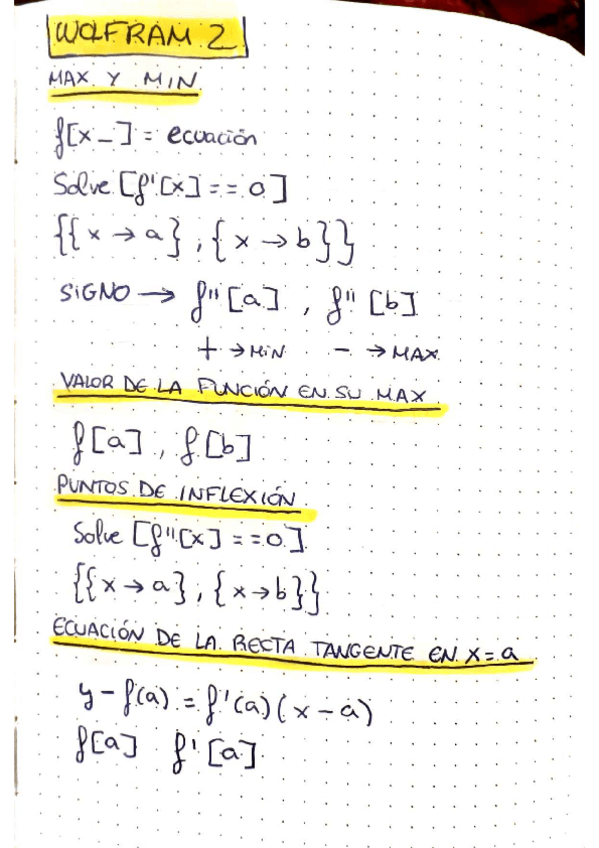 WOLFRAM 2
MAX. Y MIN.
f[x_] = ecuación
Solve [f'[x] == 0]
{{x → a}, {x → b}}
SIGNO → f''[a] , f''[b]
+ → MIN - → MAX
VALOR DE LA FUNCIÓN EN SU MAX
f[a] , f[b]
PUNTOS DE INFLEXIÓN
Solve [f''[x] == 0]
{{x → a}, {x → b}}
ECUACIÓN DE LA RECTA TANGENTE EN X = a
y - f(a) = f'(a)(x - a)
f[a] f'[a]